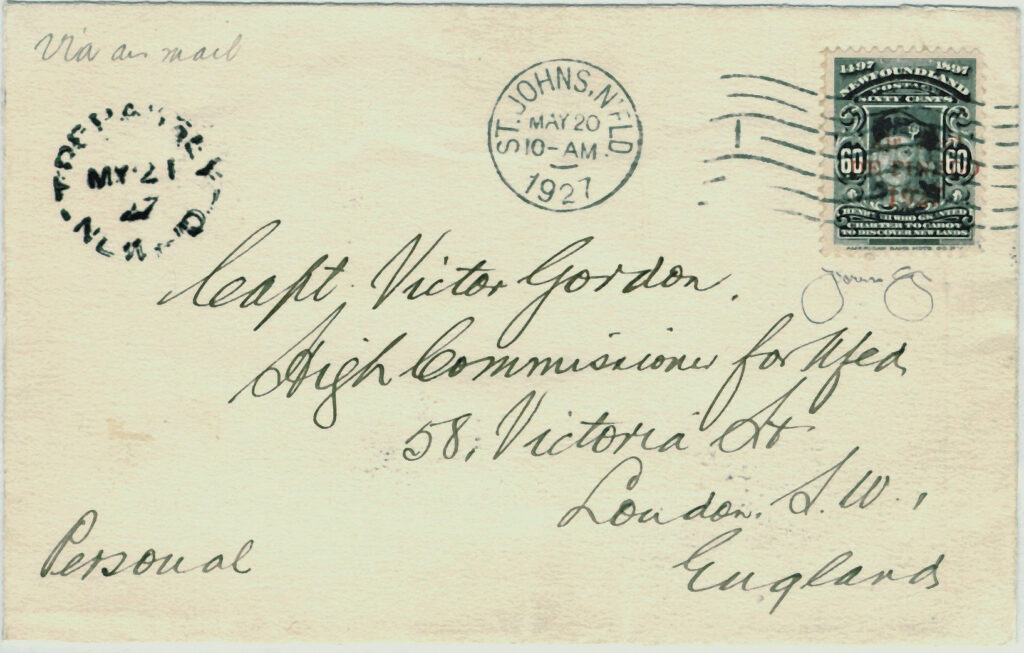 Via air mail
ST. JOHNS, N'FLD
MAY 20
10-AM
1927
1
1497 1897
NEWFOUNDLAND
POSTAGE
SIXTY CENTS
60 60
HENRY VII WHO GRANTED
CHARTER TO CABOT
TO DISCOVER NEW LANDS
MY 21
27
Capt. Victor Gordon.
High Commissioner for Nfld
58, Victoria St
London. S.W.,
England
Personal